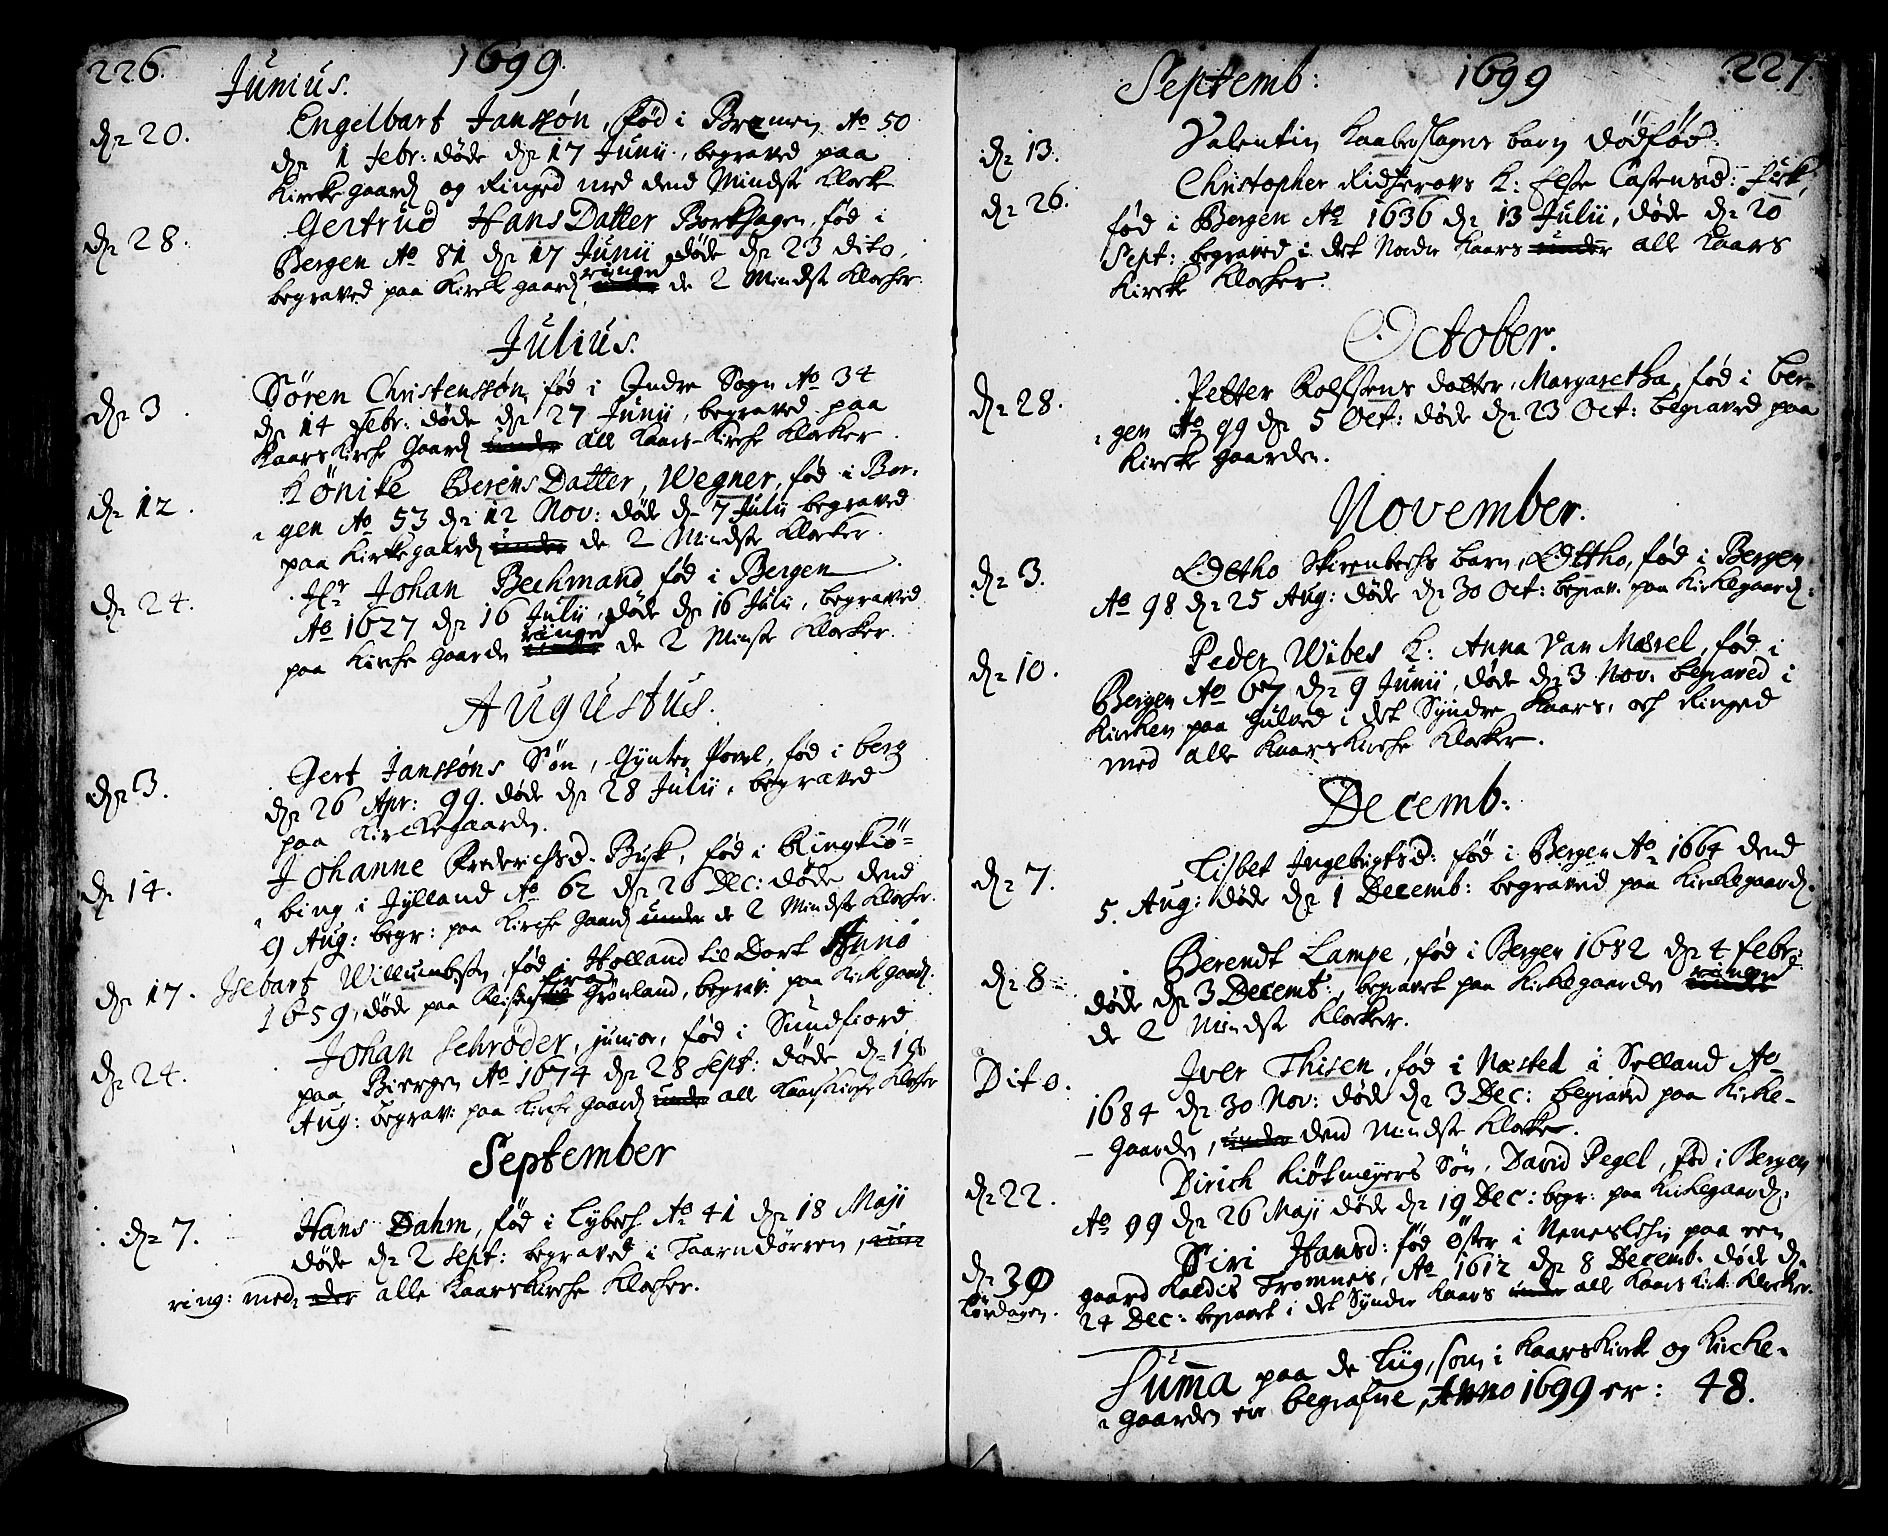 226. 1699.
Junius.
dn 20. Engelbart Janssøn, fød i Bremen Ao 50
dn 1 Febr: døde dn 17 Junii, begraved paa
Kirckegaard og Ringed med dend Mindste Klocke
dn 28. Gertrud HansDatter Borkhagen, fød i
Bergen Ao 81 dn 17 Junii døde dn 23 dito,
begraved paa Kirckegaard ringed under de 2 Mindste Klocker
Julius.
dn 3. Søren Christenssøn, fød i Indre Sogn Ao 34
dn 14 Febr: døde dn 27 Junii, begraved paa
Kaarskirche Gaard under all Kaars-Kirche Klocker
dn 12. Kønike BerensDatter, Wegner, fød i Ber-
gen Ao 53 dn 12 Nov: døde dn 7 Julii begraved
paa Kirkegaard under de 2 Mindste Klocker.
dn 24. Hr Johan Bechmand fød i Bergen
Ao 1627 dn 16 Julii, døde dn 16 Julii, begraved
paa Kirche gaarde ringed under de 2 Minste Klocker.
Augustus.
dn 3. Gert Janssøns Søn, Gynter Povel, fød i berg
dn 26 Apr: 99. døde dn 28 Julii, begraved
paa Kirckegaarden.
dn 14. Johanne Frederichsd. Busk, fød i Ringkiö-
bing i Jylland Ao 62 dn 26 Dec: døde dend
9 Aug: begr: paa Kirche Gaard under de 2 Mindste Klocher.
dn 17. Isebart Willumbssn, fød i Holland til Dort Anno
1659, døde paa Reisen fra Grønland, begrav: paa Kirkgaard.
dn 24. Johan Schrøder, junior, fød i Sundfiord
paa Biergen Ao 1674 dn 28 Sept: døde dn 18
Aug: begrav: paa Kirche Gaard under all Kaarskirche Klocker
September
dn 7. Hans Dahm, fød i Lybech Ao 41 dn 18 Maji
døde dn 2 Sept: begraved i Taarndørren, un-
ring: med der alle Kaarskirche Klocher.
Septemb: 1699 227.
dn 13. Valentin Kaaberslagers barn dødfød.
dn 26. Christopher Ridterovs K: Else Castensd: Fisk,
fød i Bergen Ao 1636 dn 13 Julii, døde dn 20
Sept: begraved i det Nordre Kaars under all Kaars
Kircke Klocker.
October.
dn 28. Petter Rolfsens datter, Margaretha, fød i Ber-
gen Ao 99 dn 5 Oct: døde dn 23 Oct: begraved paa
Kircke gaarden.
November.
dn 3. Odtho Skirenbechs barn, Odttho, fød i Bergen
Ao 98 dn 25 Aug: døde dn 30 Oct: begrav. paa Kirkegaard.
dn 10. Peder Wibes K: Anna Van Marel, fød i
Bergen Ao 67 dn 9 Junii, døde dn 3 Nov: begraved i
Kircken paa Gulved i det Syndre Kaars, och Ringed
med alle Kaarskirche Klocker.
Decemb:
dn 7. Lisbet Ingebrigtsd: fød i Bergen Ao 1664 dend
5. Aug: døde dn 1 Decemb: begraved paa Kirckegaard.
dn 8. Berendt Lampe, fød i Bergen 1682 dn 4 Febr:
døde dn 3 Decemb:, begravet paa Kirckegaarden ringed under
de 2 Mindste Klocker.
Dito. Iver Thisen, fød i Næsted i Selland Ao
1684 dn 30 Nov: døde dn 3 Dec: begraved paa Kircke-
gaarden, under dend Mindste Klocke.
dn 22. Dirich Kiøtmeyers Søn, David Pegel, fød i Bergen
Ao 99 dn 26 Maji døde dn 19 Dec: begr: paa Kirkegaard.
dn 30 Siri Hansd: fød Øster i paa een
Lørdagen. gaard Tromnes, Ao 1612 dn 8 Decemb. døde dn
24 Dec: begravet i det Syndre Kaars under all Kaars Kirk: Klocker.
Summa paa de Liig, som i Kaarskircke og Kircke-
gaarden ere begrafne, Anno 1699 er: 48.